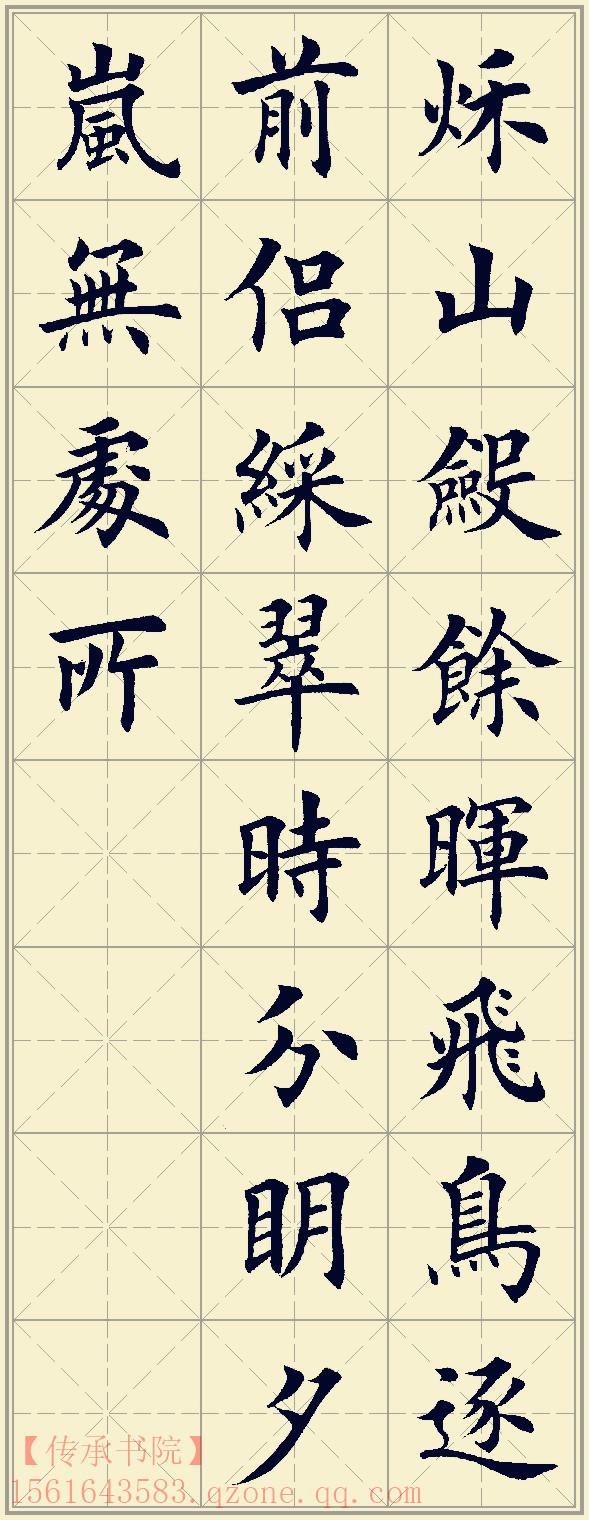 烁山斂餘暉飛鳥逐
前侣綵翠時分眀夕
嵐無處所
【传承书院】
1561643583.qzone.qq.com